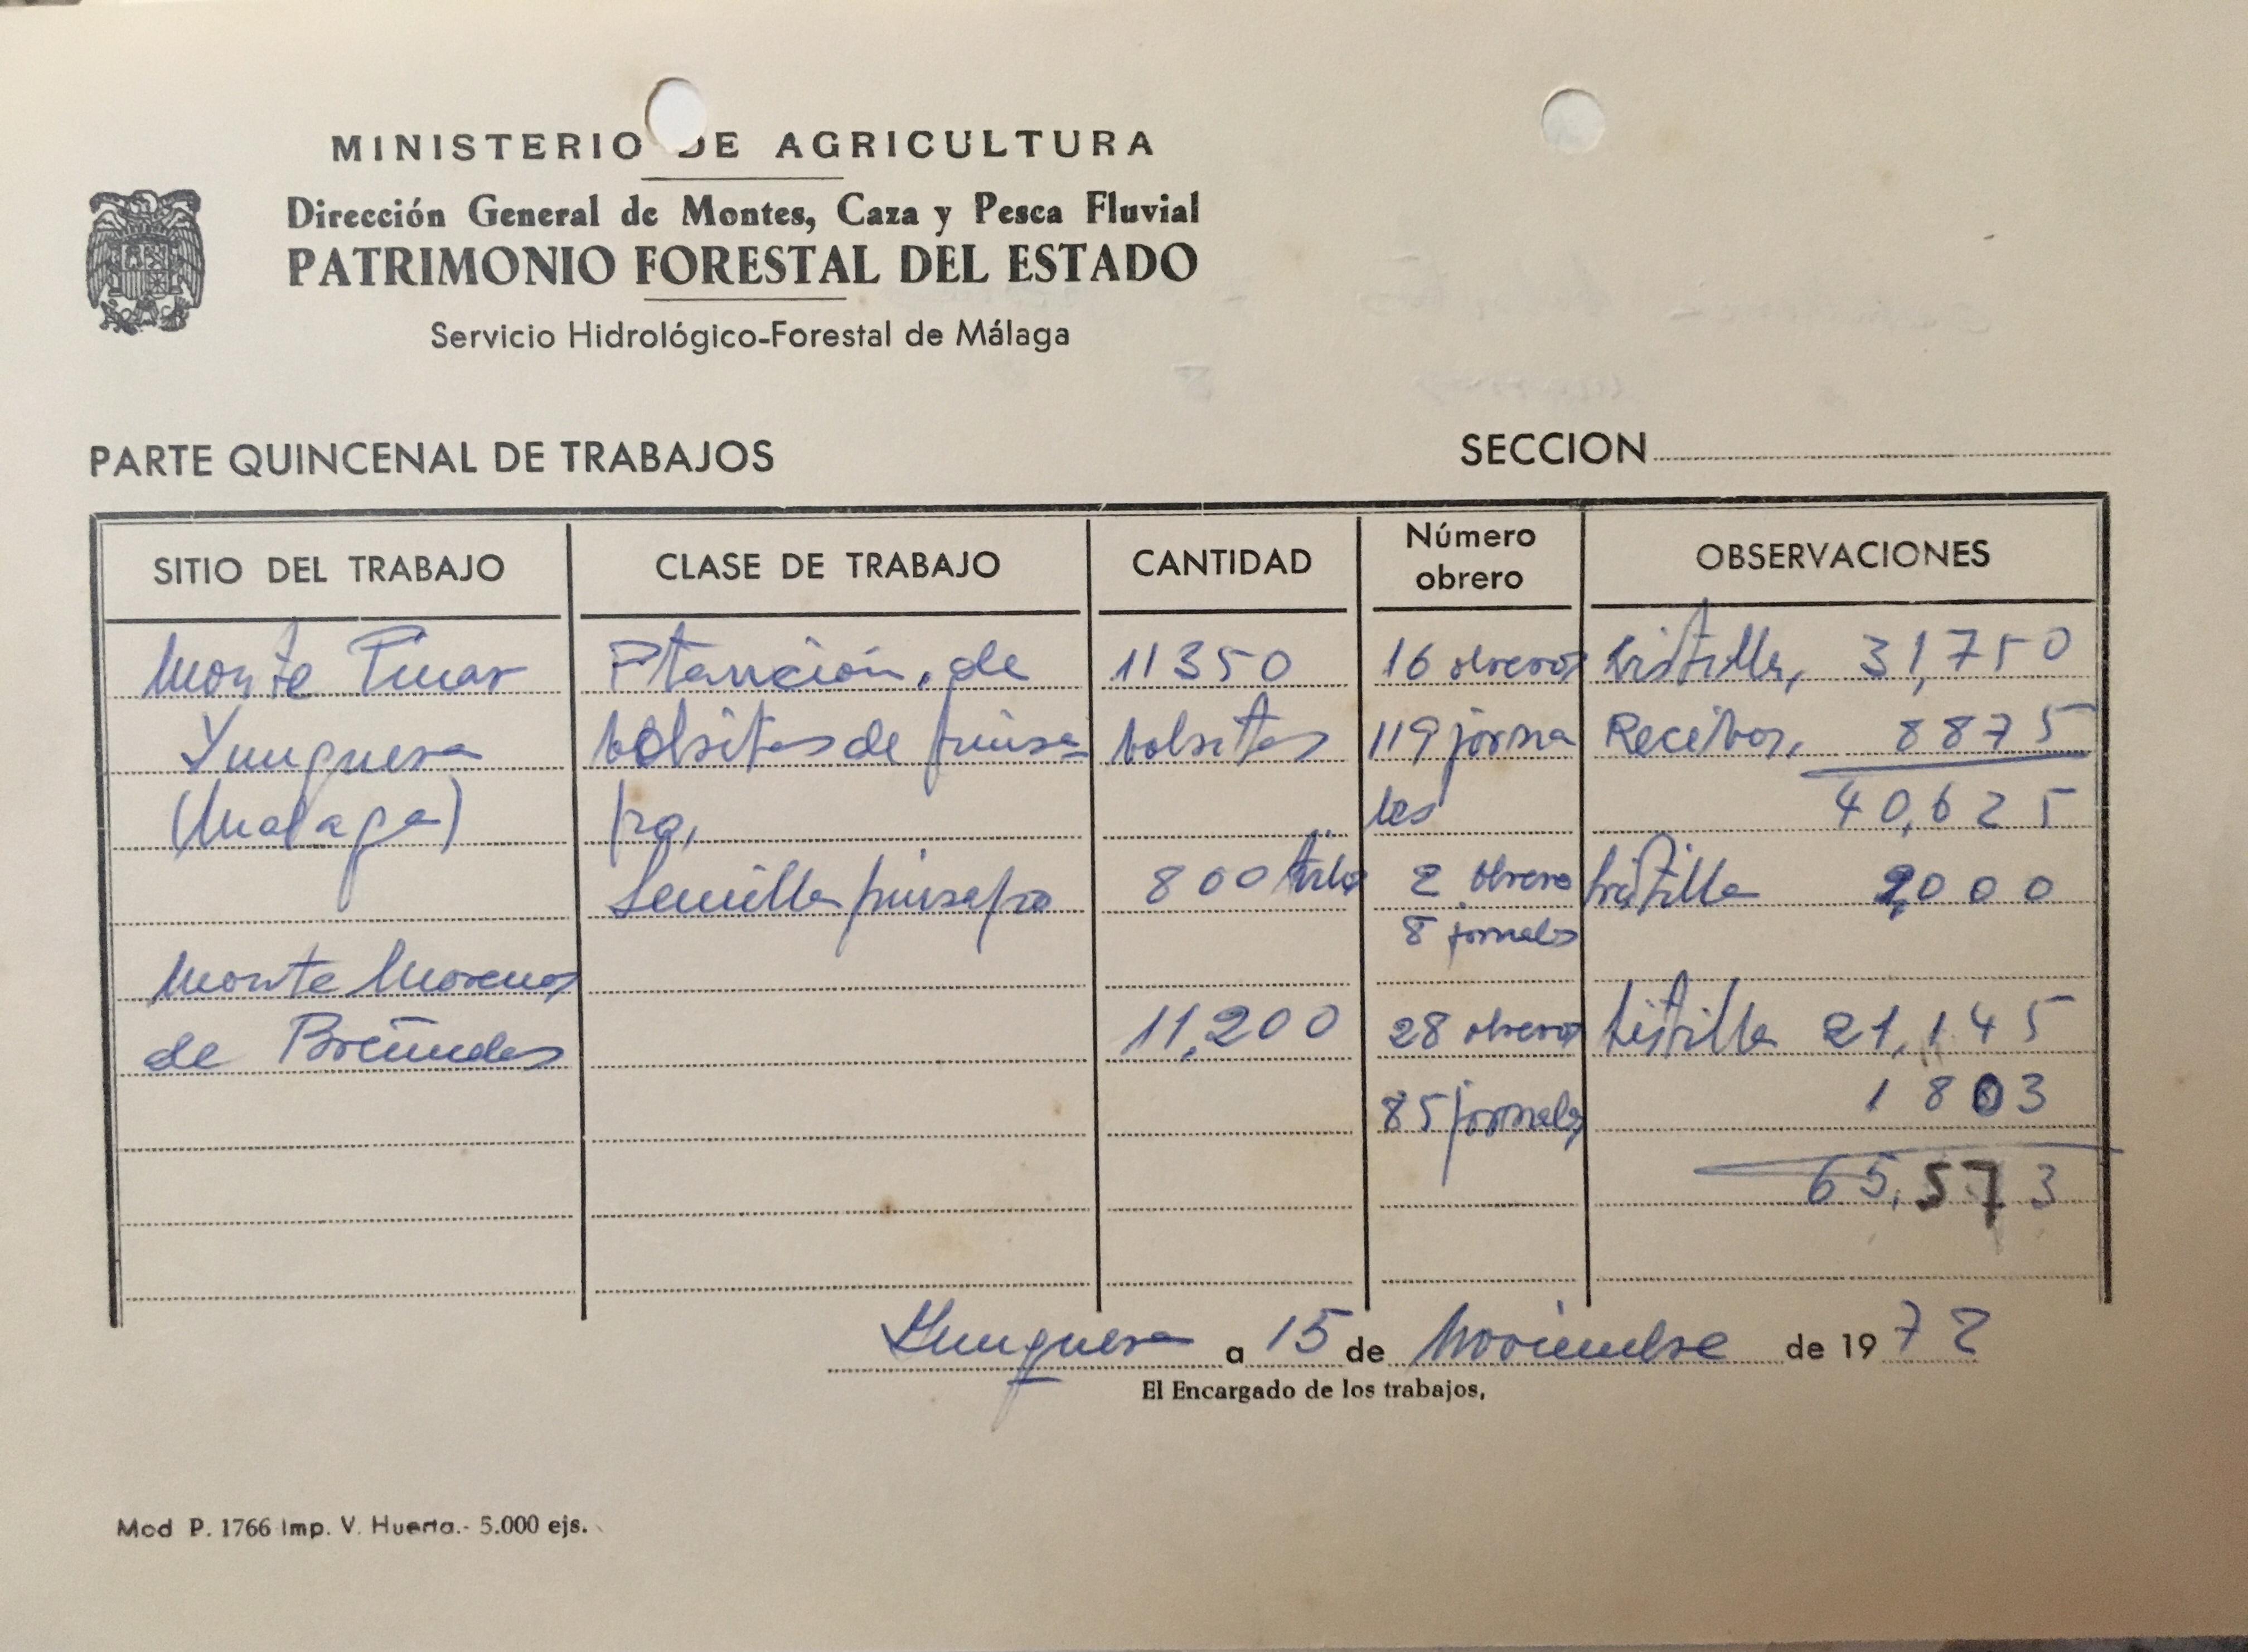 MINISTERIO DE AGRICULTURA
Dirección General de Montes, Caza y Pesca Fluvial
PATRIMONIO FORESTAL DEL ESTADO
Servicio Hidrológico-Forestal de Málaga
PARTE QUINCENAL DE TRABAJOS SECCION
SITIO DEL TRABAJO CLASE DE TRABAJO CANTIDAD Número obrero OBSERVACIONES
Monte Pinar Plantación, de 11350 16 obreros Listilla, 31,750
Yunquera bolsitas de pinsa bolsitas 119 jorna Recibos, 8875
(Malaga) po, les 40,625
Semilla pinsapo 800 kilos 2 obrero listilla 2,000
8 jornales
Monte Morenos
de 11,200 28 obreros Listilla 21,145
85 jornales 1803
65,573
Yunquera a 15 de Noviembre de 1972
El Encargado de los trabajos,
Mod P. 1766 Imp. V. Huerta.- 5.000 ejs.